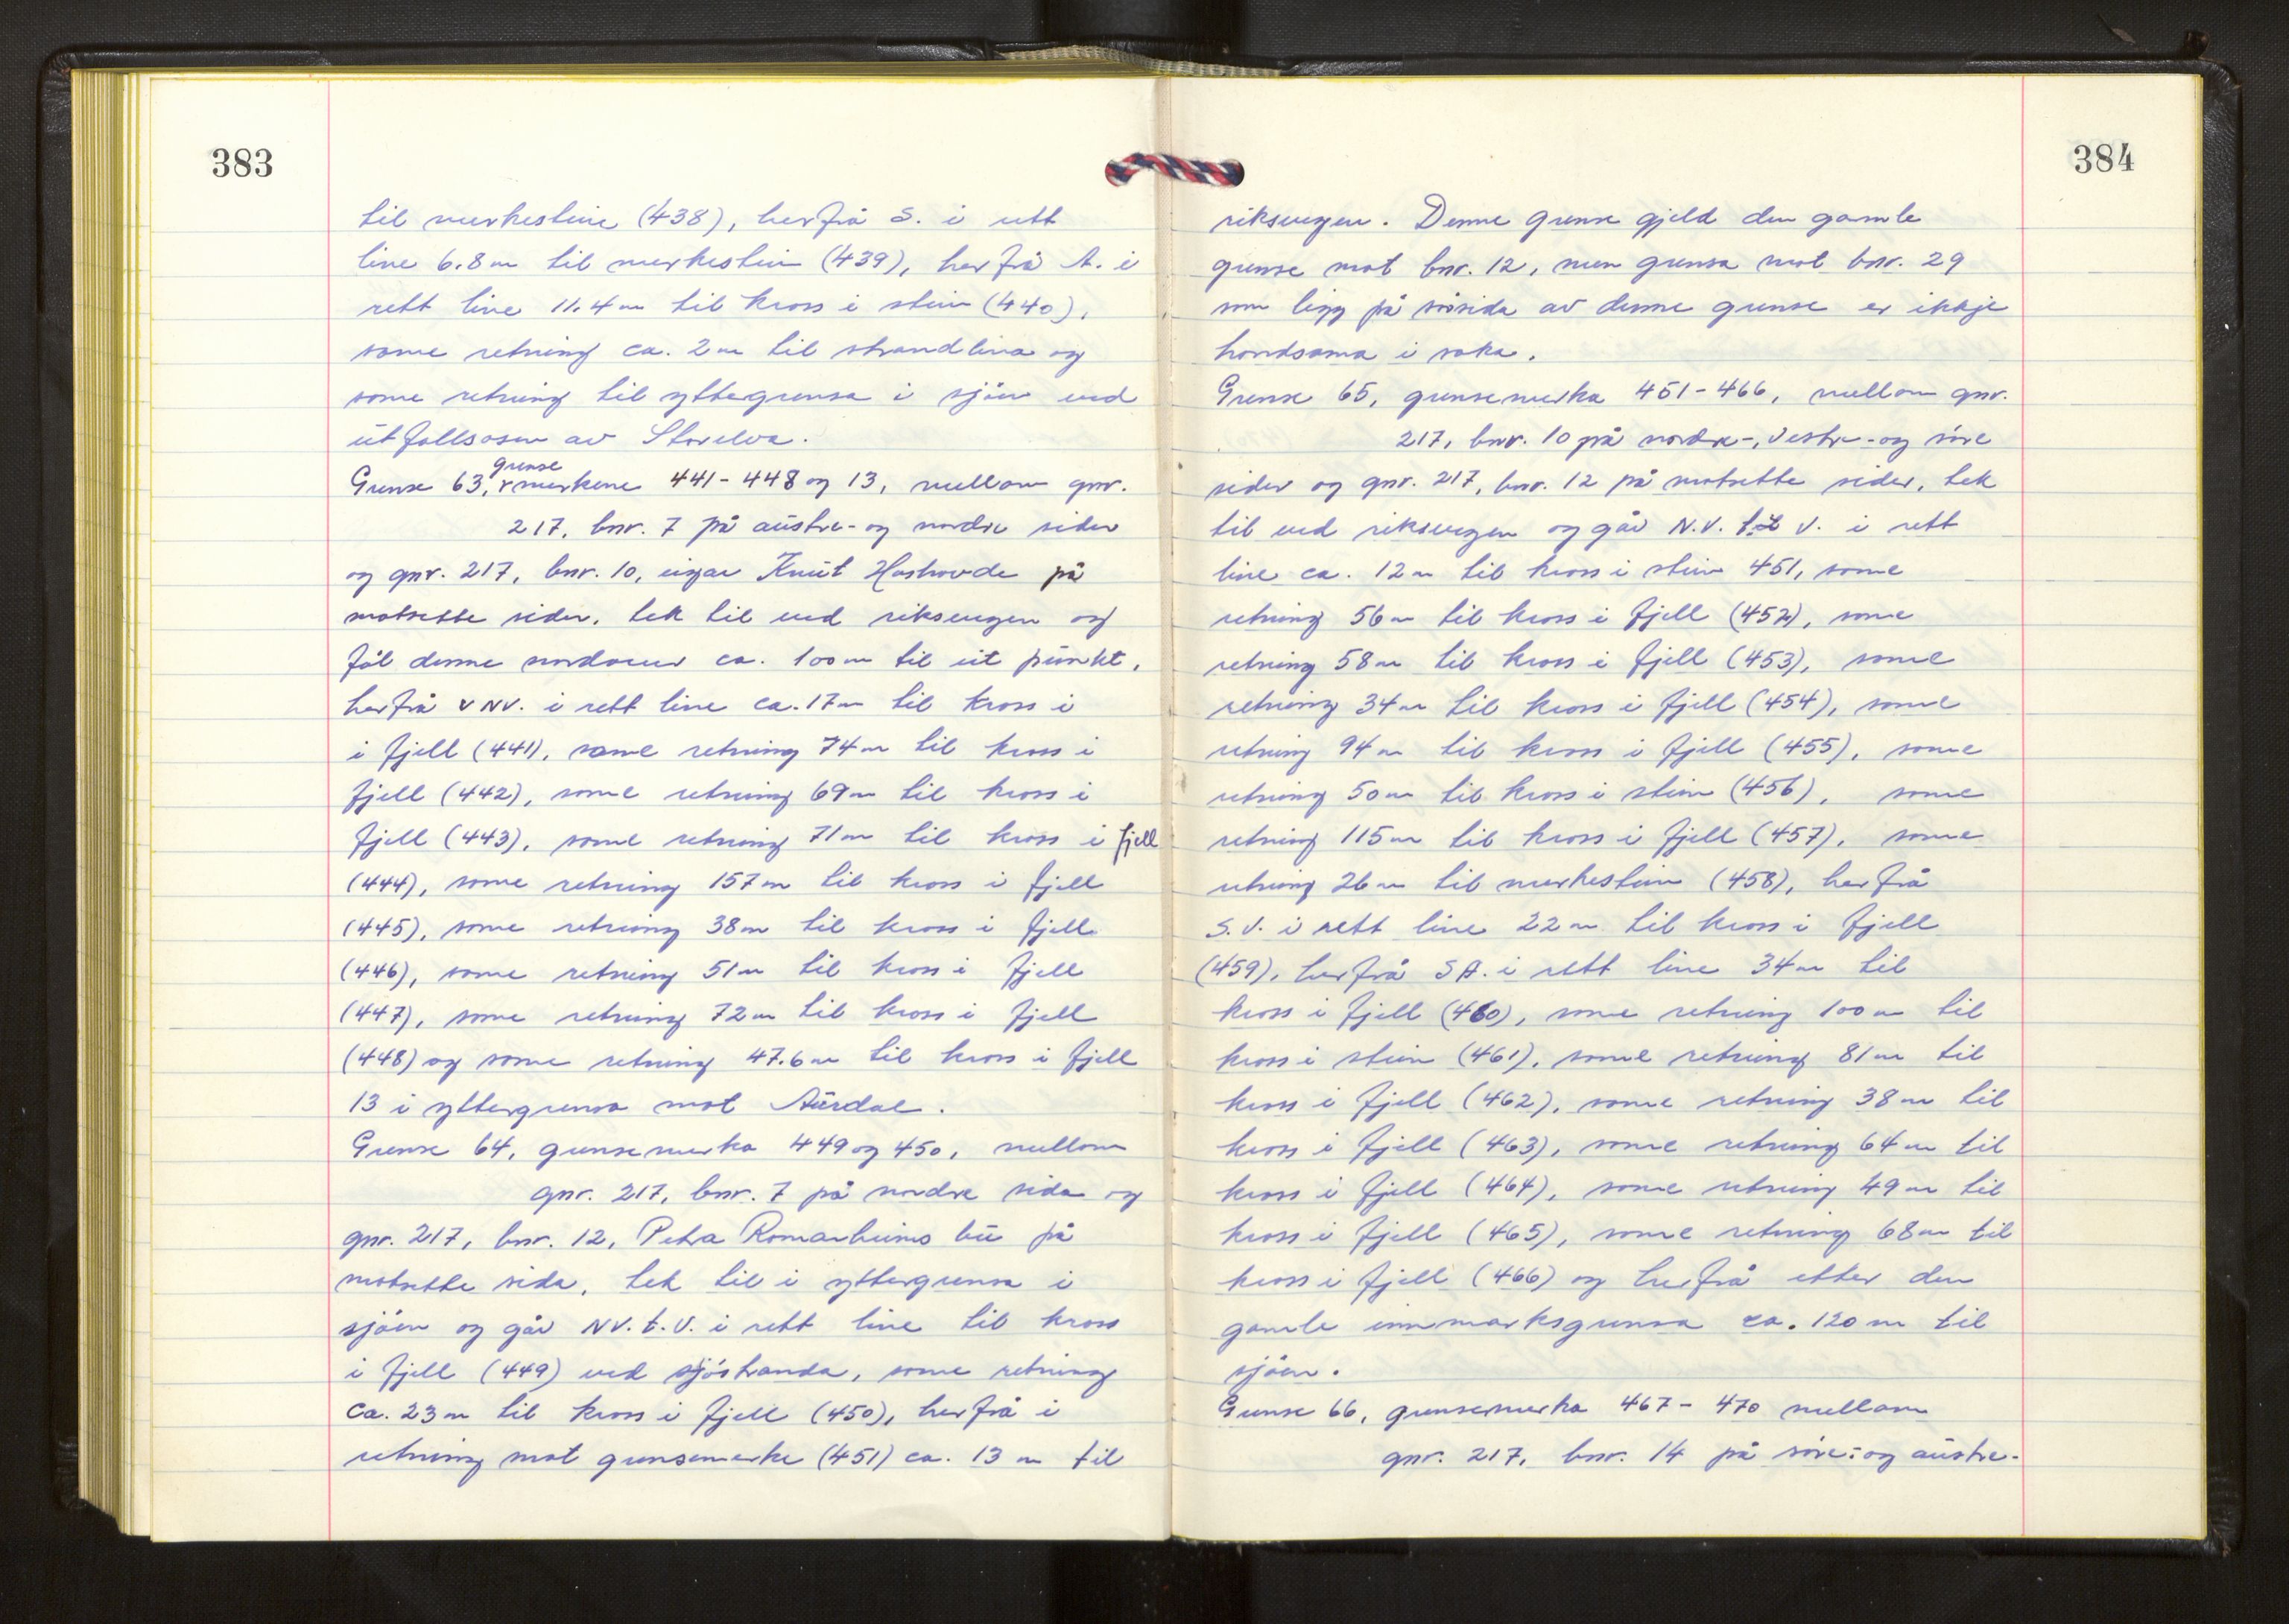 383
til merkesteine (438), herfrå S. i rett
line 6.8 m til merkestein (439), herfrå A. i
rett line 11.4 m til kross i stein (440),
same retning ca. 2 m til strandlina og
same retning til yttergrensa i sjöen ved
utfallsosen av Storelva.
Grense 63, grense merkene 441-448 og 13, mellom gnr.
217, bnr. 7 på austre- og nordre sider
og gnr. 217, bnr. 10, eigar Knut Hashovde på
motsette sider, tek til ved riksvegen og
föl denne nordover ca. 100 m til eit punkt,
herfrå V NV. i rett line ca. 17 m til kross i
i fjell (441), same retning 74 m til kross i
fjell (442), same retning 69 m til kross i
fjell (443), same retning 71 m til kross i fjell
(444), same retning 157 m til kross i fjell
(445), same retning 38 m til kross i fjell
(446), same retning 51 m til kross i fjell
(447), same retning 72 m til kross i fjell
(448) og same retning 47.6 m til kross i fjell
13 i yttergrensa mot Aurdal.
Grense 64, grensemerka 449 og 450, mellom
gnr. 217, bnr. 7 på nordre sida og
gnr. 217, bnr. 12, Petra Romarheims bu på
motsette sida, tek til i yttergrensa i
sjöen og går NV. t. V. i rett line til kross
i fjell (449) ved sjöstranda, same retning
ca. 23 m til kross i fjell (450), herfrå i
retning mot grensemerke (451) ca. 13 m til
384
riksvegen. Denne grense gjeld den gamle
grense mot bnr. 12, men grensa mot bnr. 29
som ligg på sörsida av denne grense er ikkje
handsama i saka.
Grense 65, grensemerka 451-466, mellom gnr.
217, bnr. 10 på nordre-, vestre- og söre
sider og gnr. 217, bnr. 12 på motsette sider, tek
til ved riksvegen og går N.V. til V. i rett
line ca. 12 m til kross i stein 451, same
retning 56 m til kross i fjell (452), same
retning 58 m til kross i fjell (453), same
retning 34 m til kross i fjell (454), same
retning 94 m til kross i fjell (455), same
retning 50 m til kross i stein (456), same
retning 115 m til kross i fjell (457), same
retning 26 m til merkestein (458), herfrå
S.V. i rett line 22 m til kross i fjell
(459), herfrå S A. i rett line 34 m til
kross i fjell (460), same retning 100 m til
kross i stein (461), same retning 81 m til
kross i fjell (462), same retning 38 m til
kross i fjell (463), same retning 64 m til
kross i fjell (464), same retning 49 m til
kross i fjell (465), same retning 68 m til
kross i fjell (466) og herfrå etter den
gamle innmarksgrensa ca. 120 m til
sjöen.
Grense 66, grensemerka 467-470 mellom
gnr. 217, bnr. 14 på söre- og austre-